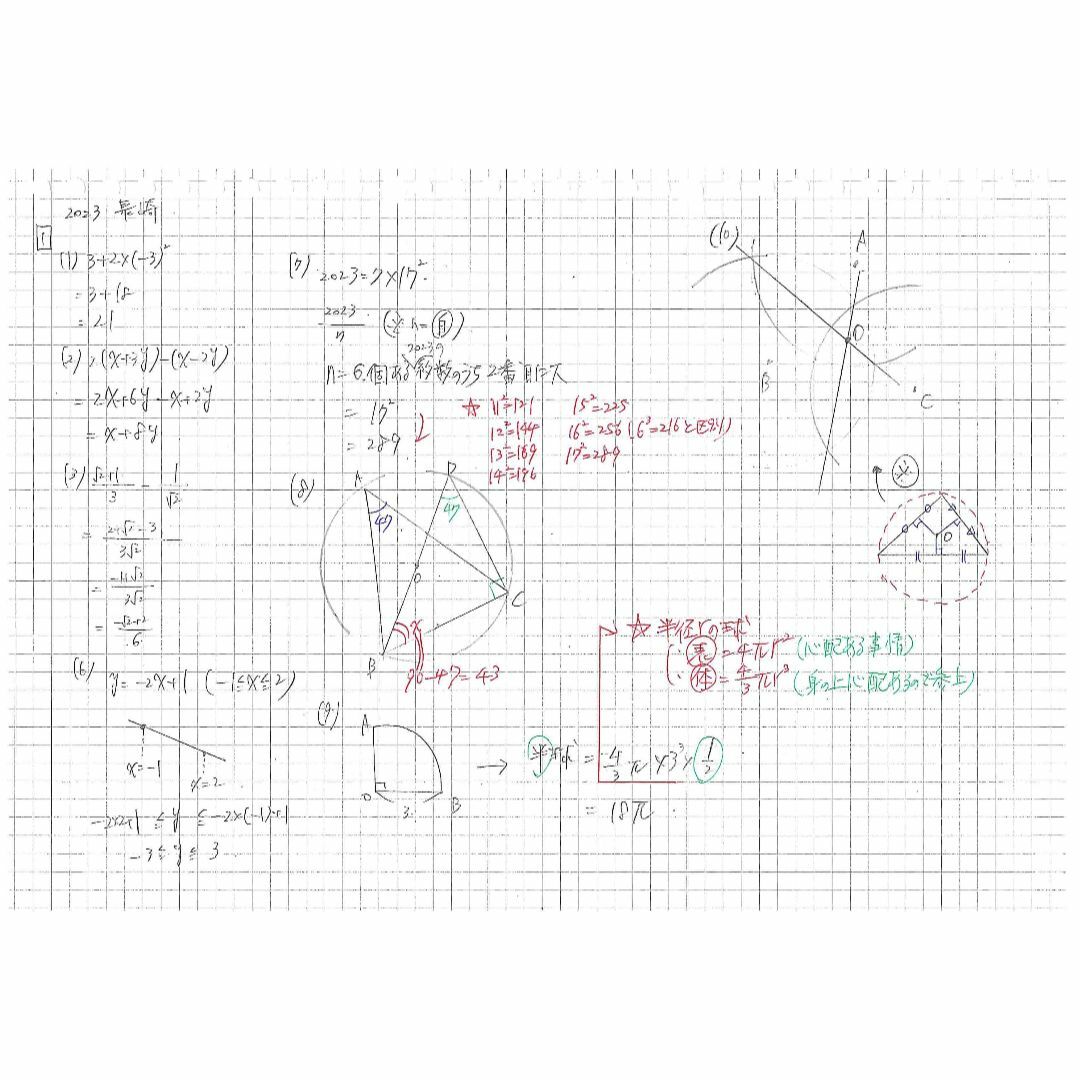 2023 長崎
1
(1) 3+2×(-3)²
= 3+18
= 21
(2) 2(x+3y)-(x-2y)
= 2x+6y-x+2y
= x+8y
(3) (√2+1)/3 - 1/√2
= (2+√2-3)/3√2
= (-1+√2)/3√2
= (-√2+2)/6
(6) y=-2x+1 (-1≦x≦2)
x=-1
x=2
-2×2+1 ≦ y ≦ -2×(-1)+1
-3≦y≦3
(7) 2023=7×17²
2023/n (※ n=自)
2023の
n= 6個ある約数のうち2番目に大
= 17²
= 289
☆ 11²=121 15²=225
12²=144 16²=256 (6³=216と区別)
13²=169 17²=289
14²=196
(8)
A
D
47
47
O
C
B
x
90-47=43
(9)
A
O
3
B
→ 半球 = 4/3 π×3³×1/2
= 18π
☆ 半径rの球
・表 = 4πr² (心配ある事情)
・体 = 4/3 πr³ (身の上心配あるので参上)
(10)
A
O
B
C
※
O